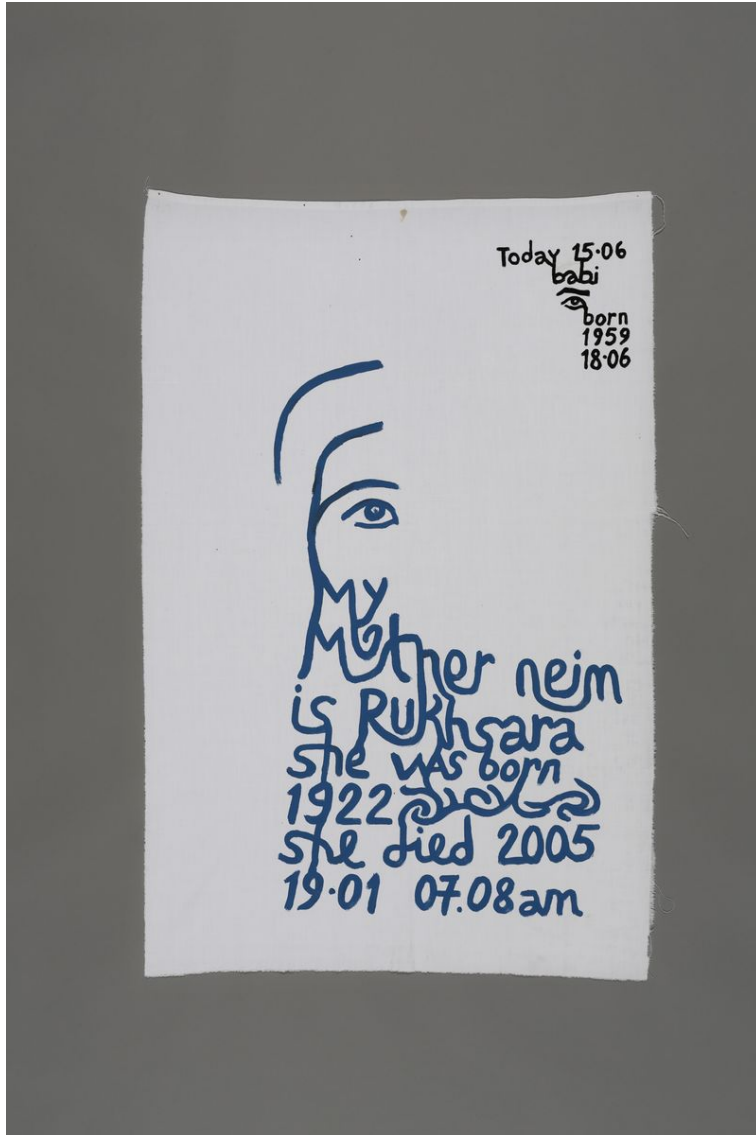 Today 15.06
babi
born
1959
18.06
My
Mother neim
is Rukhsara
she was born
1922
she died 2005
19.01 07.08am